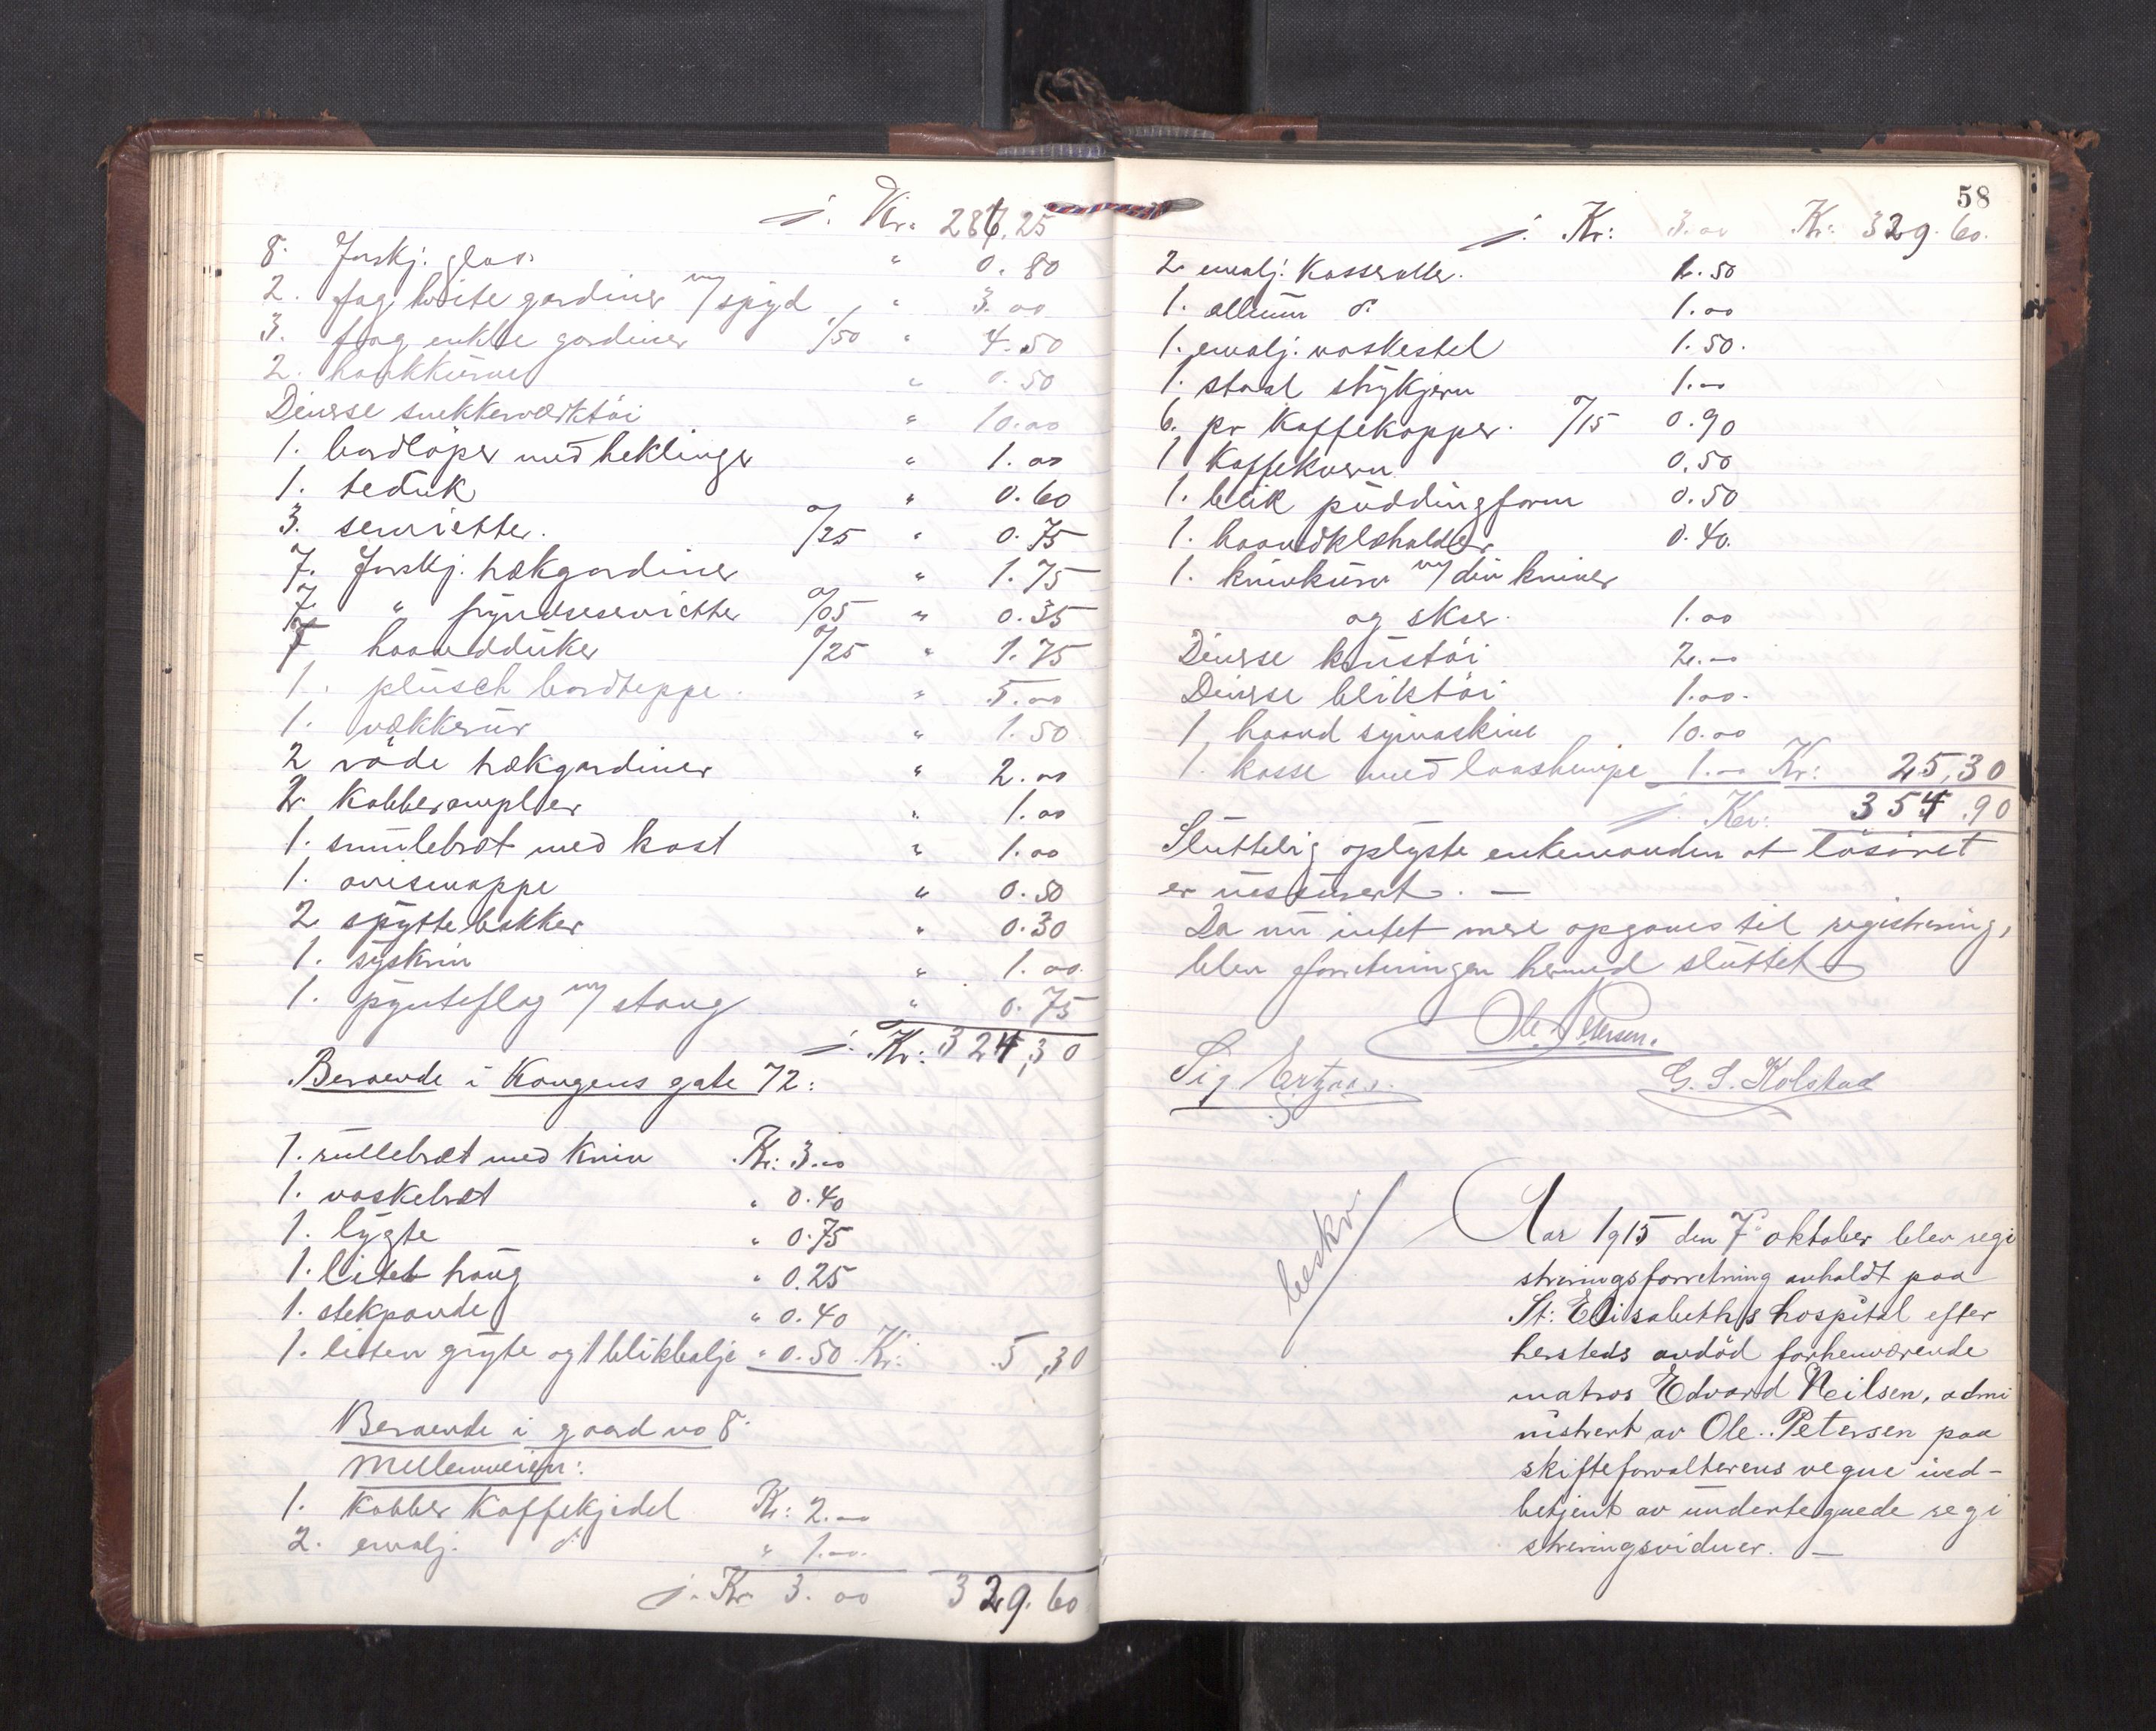 j. Kr. 287.25
8. forskj. glas " 0.80
2. fag hvite gardiner m/ spyd " 3.00
3. fag enkle gardiner 1/50 " 4.50
2. hankkurve " 0.50
Diverse snekkerværktöi " 10.00
1. bordlöper med heklinge " 1.00
1. teduk " 0.60
3. servietter. a/25 " 0.75
7. forskj. hækgardiner " 1.75
7. " pyndteservietter a/05 " 0.35
7 haandduker a/25 " 1.75
1. plüsch bordteppe. " 5.00
1. vækkerur " 1.50
2 röde hækgardiner " 2.00
2. kobberampler " 1.00
1. smulebræt med kost " 1.00
1. avismappe " 0.50
2 spyttebakker " 0.30
1. syskrin " 1.00
1. pynteflag m/ stang " 0.75
j. Kr: 324,30
Beroende i Kongens gate 72:
1. rullebræt med kniv Kr: 3.00
1. vaskebræt " 0.40
1. lygte " 0.75
1. litet traug " 0.25
1. stekpande " 0.40
1. liten gryte og 1 blikbalje " 0.50 Kr: 5,30
Beroende i gaard no 8
Mellemveien:
1. kobber kaffekjedel Kr: 2.00
2. emalj. do " 1.00
j. Kr 3.00 329.60
58
j. Kr: 3.00 Kr: 329.60.
2 emalj. kasseroller. 1.50
1. allum do 1.00
1. emalj. vaskestel 1.50.
1. staal strykjern 1.00
6. pr kaffekopper. a/15 0.90
1, kaffekvern 0.50
1. blik puddingform 0.50
1. haandklæholder 0.40.
1. knivkurv m/ div kniver
og skeer. 1.00
Diverse knustöi 2.00
Diverse bliktöi 1.00.
1, haand symaskine 10.00
1. kasse med laashempe 1.00 Kr: 25,30
j. Kr: 354.90
Sluttelig oplyste enkemanden at lösöret
er uassurert. —
Da nu intet mere opgaves til registrering,
blev forretningen hermed sluttet
Ole Petersen.
Sig. G. S. Kolstad
beskr.
Aar 1915 den 7de oktober blev regi
streringsforretning avholdt paa
St: Elisabeths hospital efter
hersteds avdöd forhenværende
matros Edvard Neilsen, admi
nistrert av Ole. Petersen paa
skifteforvalterens vegne med-
betjent av undertegnede regi
streringsvidner. —